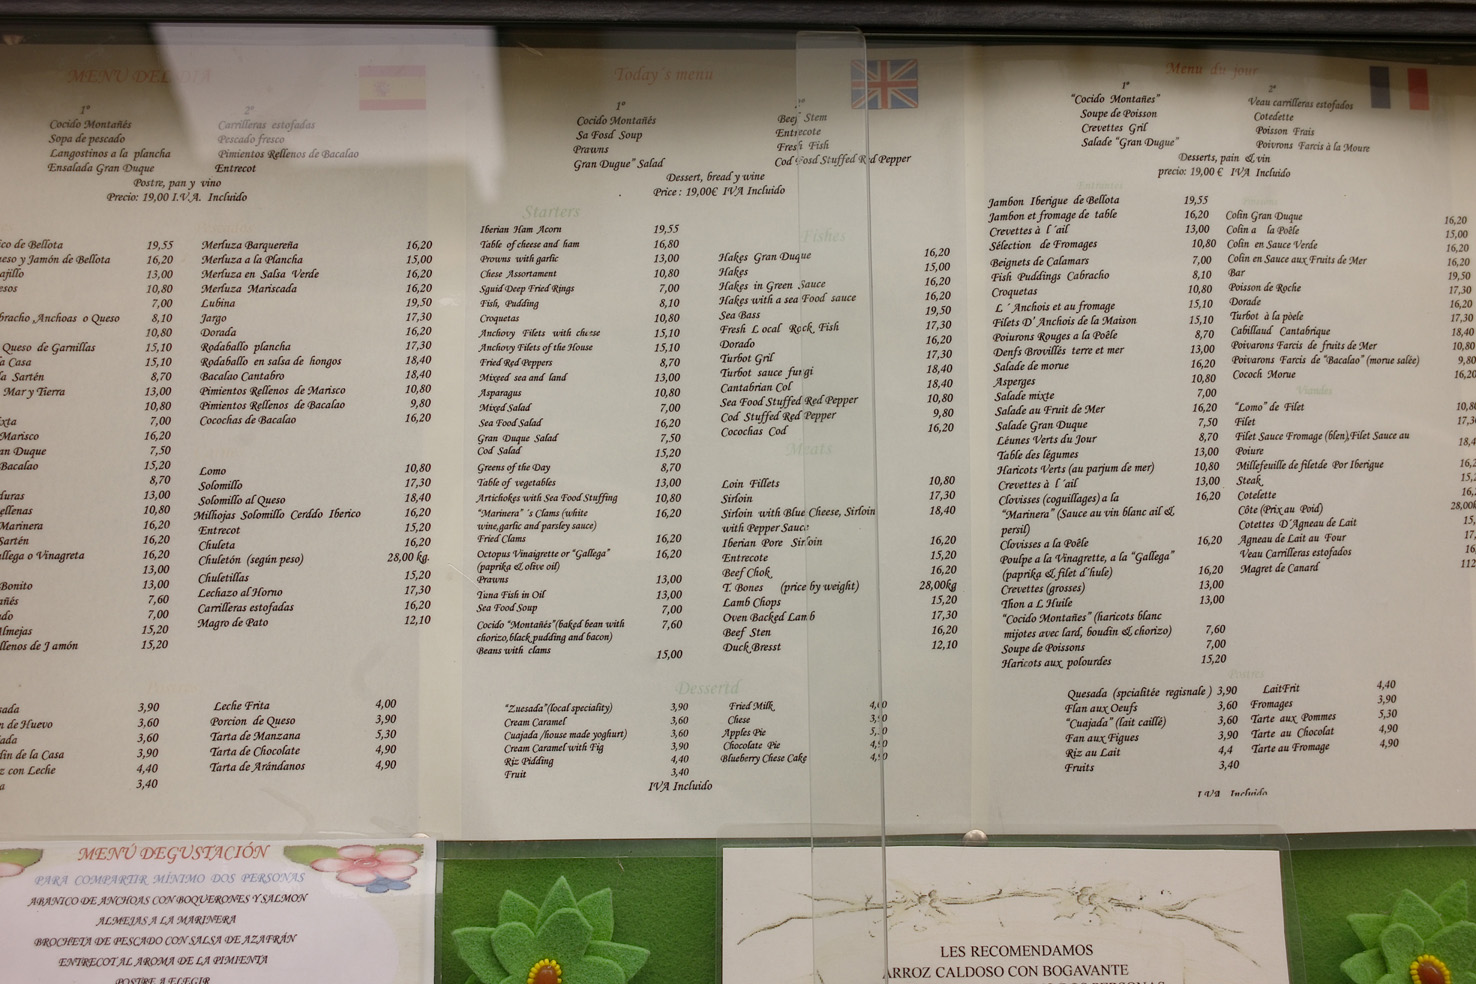 MENÚ DEL DÍA
1º
Cocido Montañés
Sopa de pescado
Langostinos a la plancha
Ensalada Gran Duque
2º
Carrilleras estofadas
Pescado fresco
Pimientos Rellenos de Bacalao
Entrecot
Postre, pan y vino
Precio: 19,00 I.V.A. Incluido
ico de Bellota 19,55
ueso y Jamón de Bellota 16,20
ajillo 13,00
esos 10,80
7,00
bracho ,Anchoas o Queso 8,10
10,80
Queso de Garnillas 15,10
la Casa 15,10
la Sartén 8,70
Mar y Tierra 13,00
10,80
ixta 7,00
Marisco 16,20
an Duque 7,50
Bacalao 15,20
8,70
duras 13,00
ellenas 10,80
Marinera 16,20
Sartén 16,20
allega o Vinagreta 16,20
13,00
Bonito 13,00
añés 7,60
ado 7,00
Almejas 15,20
llenos de Jamón 15,20
Merluza Barquereña 16,20
Merluza a la Plancha 15,00
Merluza en Salsa Verde 16,20
Merluza Mariscada 16,20
Lubina 19,50
Jargo 17,30
Dorada 16,20
Rodaballo plancha 17,30
Rodaballo en salsa de hongos 18,40
Bacalao Cantabro 18,40
Pimientos Rellenos de Marisco 10,80
Pimientos Rellenos de Bacalao 9,80
Cocochas de Bacalao 16,20
Lomo 10,80
Solomillo 17,30
Solomillo al Queso 18,40
Milhojas Solomillo Cerddo Iberico 16,20
Entrecot 15,20
Chuleta 16,20
Chuletón (según peso) 28,00 kg.
Chuletillas 15,20
Lechazo al Horno 17,30
Carrilleras estofadas 16,20
Magro de Pato 12,10
sada 3,90
n de Huevo 3,60
jada 3,60
lin de la Casa 3,90
z con Leche 4,40
a 3,40
Leche Frita 4,00
Porcion de Queso 3,90
Tarta de Manzana 5,30
Tarta de Chocolate 4,90
Tarta de Arándanos 4,90
Today´s menu
1º
Cocido Montañés
Sa Fosd Soup
Prawns
Gran Dugue" Salad
Beef Stem
Entrecote
Fresh Fish
Cod Fosd Stuffed Red Pepper
Dessert, bread y wine
Price : 19,00€ IVA Incluido
Starters
Iberian Ham Acorn 19,55
Table of cheese and ham 16,80
Prowns with garlic 13,00
Chese Assortament 10,80
Sguid Deep Fried Rings 7,00
Fish, Pudding 8,10
Croquetas 10,80
Anchovy Filets with chesse 15,10
Anchovy Filets of the House 15,10
Fried Red Peppers 8,70
Mixeed sea and land 13,00
Asparagus 10,80
Mixed Salad 7,00
Sea Food Salad 16,20
Gran Duque Salad 7,50
Cod Salad 15,20
Greens of the Day 8,70
Table of vegetables 13,00
Artichokes with Sea Food Stuffing 10,80
"Marinera" ´s Clams (white 16,20
wine,garlic and parsley sauce)
Fried Clams 16,20
Octopus Vinaigrette or "Gallega" 16,20
(paprika & olive oil)
Prawns 13,00
Tuna Fish in Oil 13,00
Sea Food Soup 7,00
Cocido "Montañés"(baked bean with 7,60
chorizo,black pudding and bacon)
Beans with clams 15,00
Fishes
Hakes Gran Duque 16,20
Hakes 15,00
Hakes in Green Sauce 16,20
Hakes with a sea Food sauce 16,20
Sea Bass 19,50
Fresh Local Rock Fish 17,30
Dorado 16,20
Turbot Gril 17,30
Turbot sauce fungi 18,40
Cantabrian Col 18,40
Sea Food Stuffed Red Pepper 10,80
Cod Stuffed Red Pepper 9,80
Cocochas Cod 16,20
Meats
Loin Fillets 10,80
Sirloin 17,30
Sirloin with Blue Cheese, Sirloin 18,40
with Pepper Sauce
Iberian Pore Sirloin 16,20
Entrecote 15,20
Beef Chok 16,20
T. Bones (price by weight) 28,00kg
Lamb Chops 15,20
Oven Backed Lamb 17,30
Beef Sten 16,20
Duck Bresst 12,10
Dessertd
"Zuesada"(local speciality) 3,90
Cream Caramel 3,60
Cuajada /house made yoghurt) 3,60
Cream Caramel with Fig 3,90
Riz Pidding 4,40
Fruit 3,40
Fried Milk
Chese
Apples Pie
Chocolate Pie
Blueberry Chese Cake
IVA Incluido
Menu du jour
1º
"Cocido Montañes"
Soupe de Poisson
Crevettes Gril
Salade "Gran Dugue"
2º
Veau carrilleras estofados
Cotedette
Poisson Frais
Poivrons Farcis à la Moure
Desserts, pain & vin
precio: 19,00 € IVA Incluido
Entrantes
Jambon Iberigue de Bellota 19,55
Jambon et fromage de table 16,20
Crevettes à l´ail 13,00
Sélection de Fromages 10,80
Beignets de Calamars 7,00
Fish Puddings Cabracho 8,10
Croquetas 10,80
L´Anchois et au fromage 15,10
Filets D'Anchois de la Maison 15,10
Poiurons Rouges a la Poêle 8,70
Denfs Brovillés terre et mer 13,00
Salade de morue 16,20
Asperges 10,80
Salade mixte 7,00
Salade au Fruit de Mer 16,20
Salade Gran Duque 7,50
Léunes Verts du Jour 8,70
Table des légumes 13,00
Haricots Verts (au parjum de mer) 10,80
Crevettes à l´ail 13,00
Clovisses (coguillages) a la 16,20
"Marinera" (Sauce au vin blanc ail &
persil)
Clovisses a la Poêle 16,20
Poulpe a la Vinagrette, a la "Gallega"
(paprika & filet d'hule) 16,20
Crevettes (grosses) 13,00
Thon a L Huile 13,00
"Cocido Montañes" (haricots blanc
mijotes avec lard, boudin & chorizo) 7,60
Soupe de Poissons 7,00
Haricots aux polourdes 15,20
Colin Gran Duque 16,20
Colin a la Poêle 15,00
Colin en Sauce Verde 16,20
Colin en Sauce aux Fruits de Mer 16,20
Bar 19,50
Poisson de Roche 17,30
Dorade 16,20
Turbot à la pòele 17,30
Cabillaud Cantabrique 18,40
Poivarons Farcis de fruits de Mer 10,80
Poivarons Farcis de "Bacalao" (morue salée) 9,80
Cococh Morue 16,20
Viandes
"Lomo" de Filet 10,80
Filet 17,3
Filet Sauce Fromage (blen),Filet Sauce au 18,4
Poiure
Millefeuille de filetde Por Iberigue 16,2
Steak 15,2
Cotelette 16,2
Côte (Prix au Poid) 28,00k
Cotettes D'Agneau de Lait 15,
Agneau de Lait au Four 17,
Veau Carrilleras estofados 16,
Magret de Canard 112
Quesada (spcialitée regisnale) 3,90
Flan aux Oeufs 3,60
"Cuajada" (lait caillè) 3,60
Fan aux Figues 3,90
Riz au Lait 4,4
Fruits 3,40
LaitFrit 4,40
Fromages 3,90
Tarte aux Pommes 5,30
Tarte au Chocolat 4,90
Tarte au Fromage 4,90
I.VA Incluido
MENÚ DEGUSTACIÓN
PARA COMPARTIR MÍNIMO DOS PERSONAS
ABANICO DE ANCHOAS CON BOQUERONES Y SALMON
ALMEJAS A LA MARINERA
BROCHETA DE PESCADO CON SALSA DE AZAFRÁN
ENTRECOT AL AROMA DE LA PIMIENTA
POSTRE A ELEGIR
LES RECOMENDAMOS
ARROZ CALDOSO CON BOGAVANTE